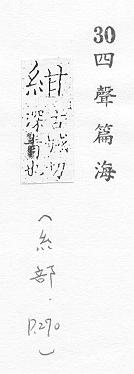 30四聲篇海
紺
古憾切
深青也
(糸部.
P.270)